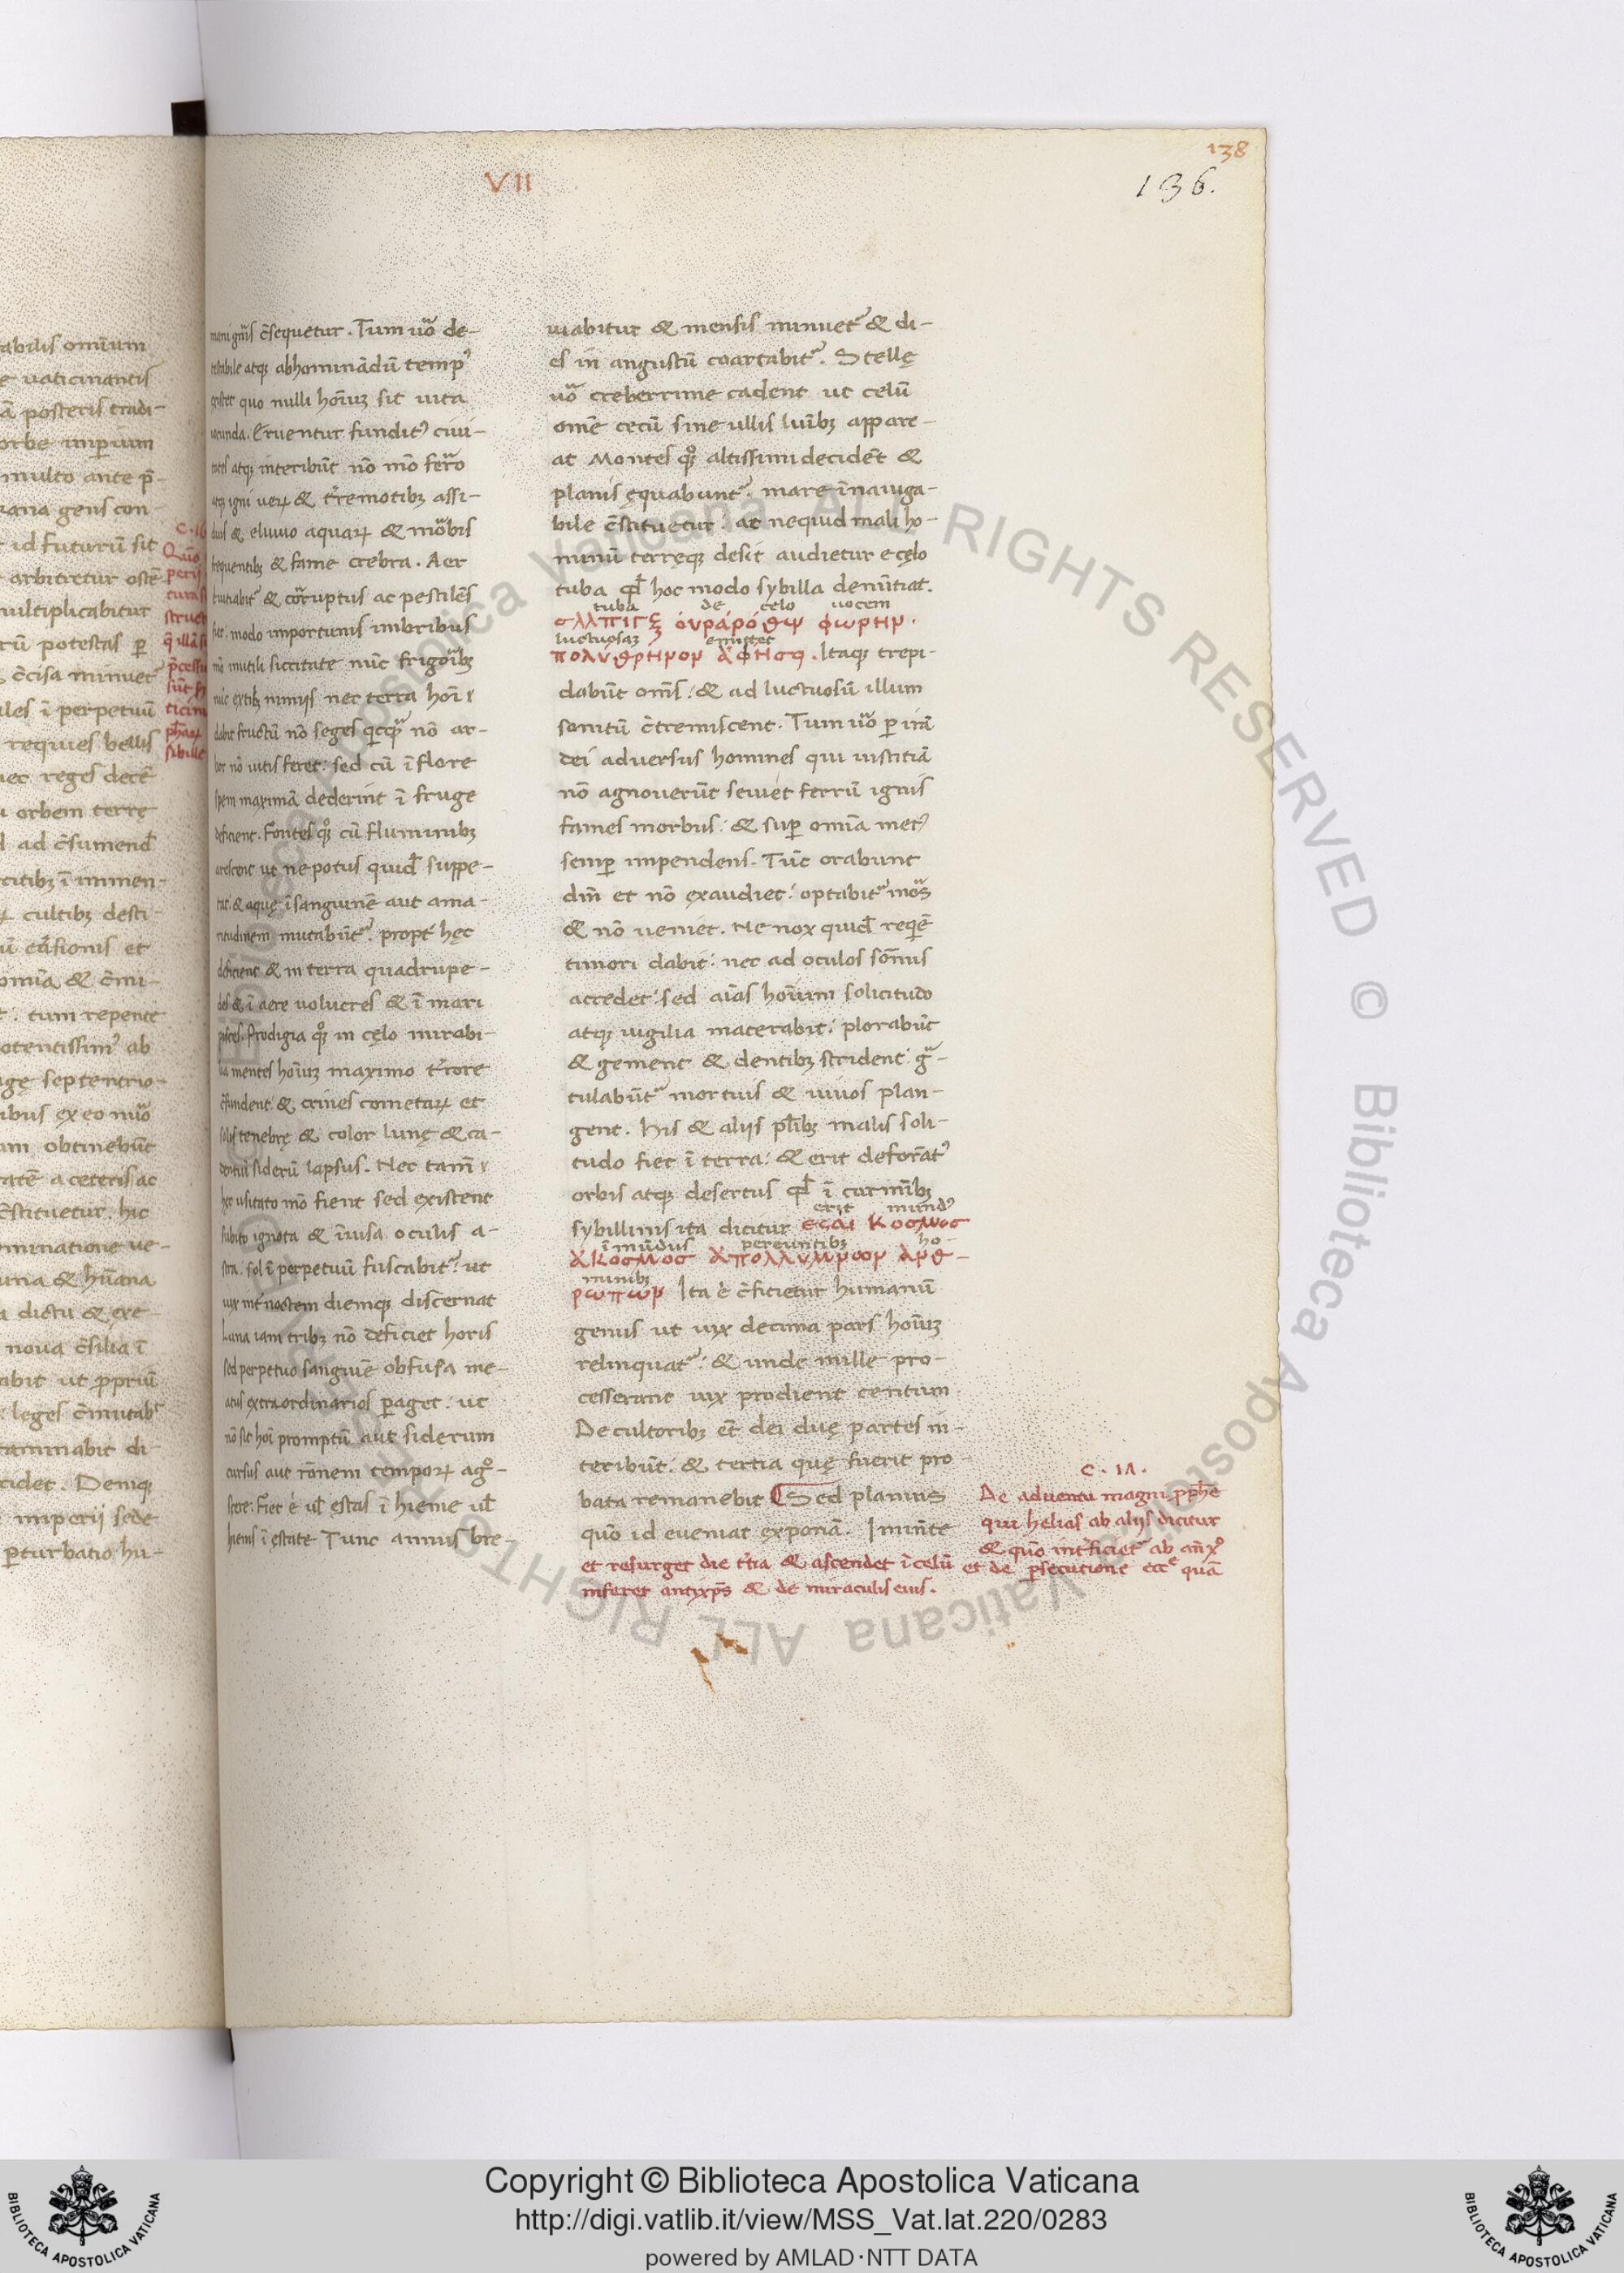 VII
138
136.
abilis omīum
e vaticinantis
ā posteris tradi-
orbe imperium
multo ante p̄-
rana gens con-
id futurū sit
arbitretur ostē-
multiplicabitur
rū potestas ꝑ
c̄cisa minuet
les ī perpetuū
requies bellis
nec reges decē
orbem terrę
ad c̄sumend
citibꝫ ī immen-
cultibꝫ desti-
omīa & c̄mi-
tum repente
otentissimꝰ ab
septentrio-
ibus ex eo mō
am obtinebūt
atē a ceteris ac
c̄stituetur. hic
minatione ve-
una & hūana
dictu & exe-
nova c̄silia ī
abit ut ꝓpriū
leges c̄mutabt
taminabit di-
cidet. Deniqꝫ
imperii sede
ꝑturbatio hu-
c̄sequetur. Tum uō de-
testabile atqꝫ abhominādū tempꝰ
quo nulli hoīuꝫ sit uita
iucunda. Eruentur funditꝰ ciui-
tates atqꝫ interibūt nō mō ferro
atqꝫ igni uerꝝ & tremotibꝫ assi-
duis & eluuio aquaꝝ & mōbis
frequentibꝫ & fame crebra. Aer
& corruptus ac pestilēs
modo importunis imbribus
inutili siccitate nūc frigoribꝫ
nūc nimiis nec terra hoī
dabit fructū nō seges nō ar-
bor nō uitis feret: sed cū ī flore
spem maximā dederint ī fruge
deficient. Fontes qꝫ cū fluminibꝫ
arescent ut ne potus quidē suppe-
tat & aquę ī sanguinē aut ama-
ritudinem mutabūt. propt hęc
deficient & in terra quadrupe-
des & ī aere volucres & ī mari
pisces. Prodigia qꝫ in cęlo mirabi-
lia mentes hoīuꝫ maximo trrore
c̄fundent & crines cometaꝝ et
solis tenebrę & color lunę & ca-
dentiū siderū lapsus. Nec tamē
hec usitato mō fient sed existent
subito ignota & īuisa oculis a-
stra. sol ī perpetuū fuscabit ut
uix int noctem diemqꝫ discernat
Luna iam tribꝫ nō deficiet horis
sed perpetuo sanguīe obfusa me-
atus extraordinarios ꝑaget: ut
nō sit hoī promptū aut siderum
cursus aut rōnem tempoꝝ agᵒ-
scere. Fiet ē ul ęstas ī hieme ul
hiems ī ęstate Tunc annus bre-
uiabitur & mensis minuet & di-
es in angustū coartabit. Stellę
uō creberrime cadent ut celū
omē cecū sine ullis luībꝫ appare-
at Montes qꝫ altissimi decidēt &
planis ęquabunt. mare īnauiga-
bile c̄stituetur. ac nequid mali ho-
minū terręqꝫ desit audietur e cęlo
tuba qd hoc modo sybilla denūtiat.
tuba de celo uocem
σλπιγξ οὐράρόθεψ φωρηρ.
luctuosaꝫ emittet
πολύθρήρορ ἀφησει. Itaqꝫ trepi-
dabūt om̄s: & ad luctuosū illum
sonitū c̄tremiscent. Tum uō ꝑ irā
dei adversus homines qui iustitiā
nō agnouerūt seuiet ferrū ignis
fames morbus: & suꝑ omīa metꝰ
semꝑ impendens. Tūc orabunt
dm̄ et nō exaudiet: optabit mors
& nō ueniet. Ne nox quid reqiē
timori dabit: nec ad oculos somnus
accedet: sed aīas hoīum solicitudo
atqꝫ uigilia macerabit: plorabūt
& gement & dentibꝫ strident: gra-
tulabūt mortuis & uiuos plan-
gent. His & aliis pluribꝫ malis soli-
tudo fiet ī terra: & erit deformatꝰ
orbis atqꝫ desertus qd ī carmībꝫ
erit mundꝰ
sybillinis ita dicitur εσαι κοσμος
ī mūdus pereuntibꝫ ho-
ἀκόσμος ἀπολλυμρωρ ἀρθ-
minibꝫ
ρωπωρ Ita ē c̄ficietur humanū
genus ut uix decima pars hoīuꝫ
relinquat: & unde mille pro-
cesserant uix prodient centum
De cultoribꝫ et dei duę partes in-
teribūt: & tertia quę fuerit pro
bata remanebit Sed planius
quō id eveniat exponā. Iminēte
C. 17.
De adventu magni ꝓphē
qui helias ab aliis dicitur
& quō intrficiet ab anxᵒ
et resurget die trtia & ascendet ī celū et de ꝑsecutione ecc̄e quā
inferet antyxps & de miraculis eius.
Copyright © Biblioteca Apostolica Vaticana
http://digi.vatlib.it/view/MSS_Vat.lat.220/0283
powered by AMLAD·NTT DATA
BIBLIOTECA APOSTOLICA VATICANA
BIBLIOTECA APOSTOLICA VATICANA
© Biblioteca Apostolica Vaticana ALL RIGHTS RESERVED